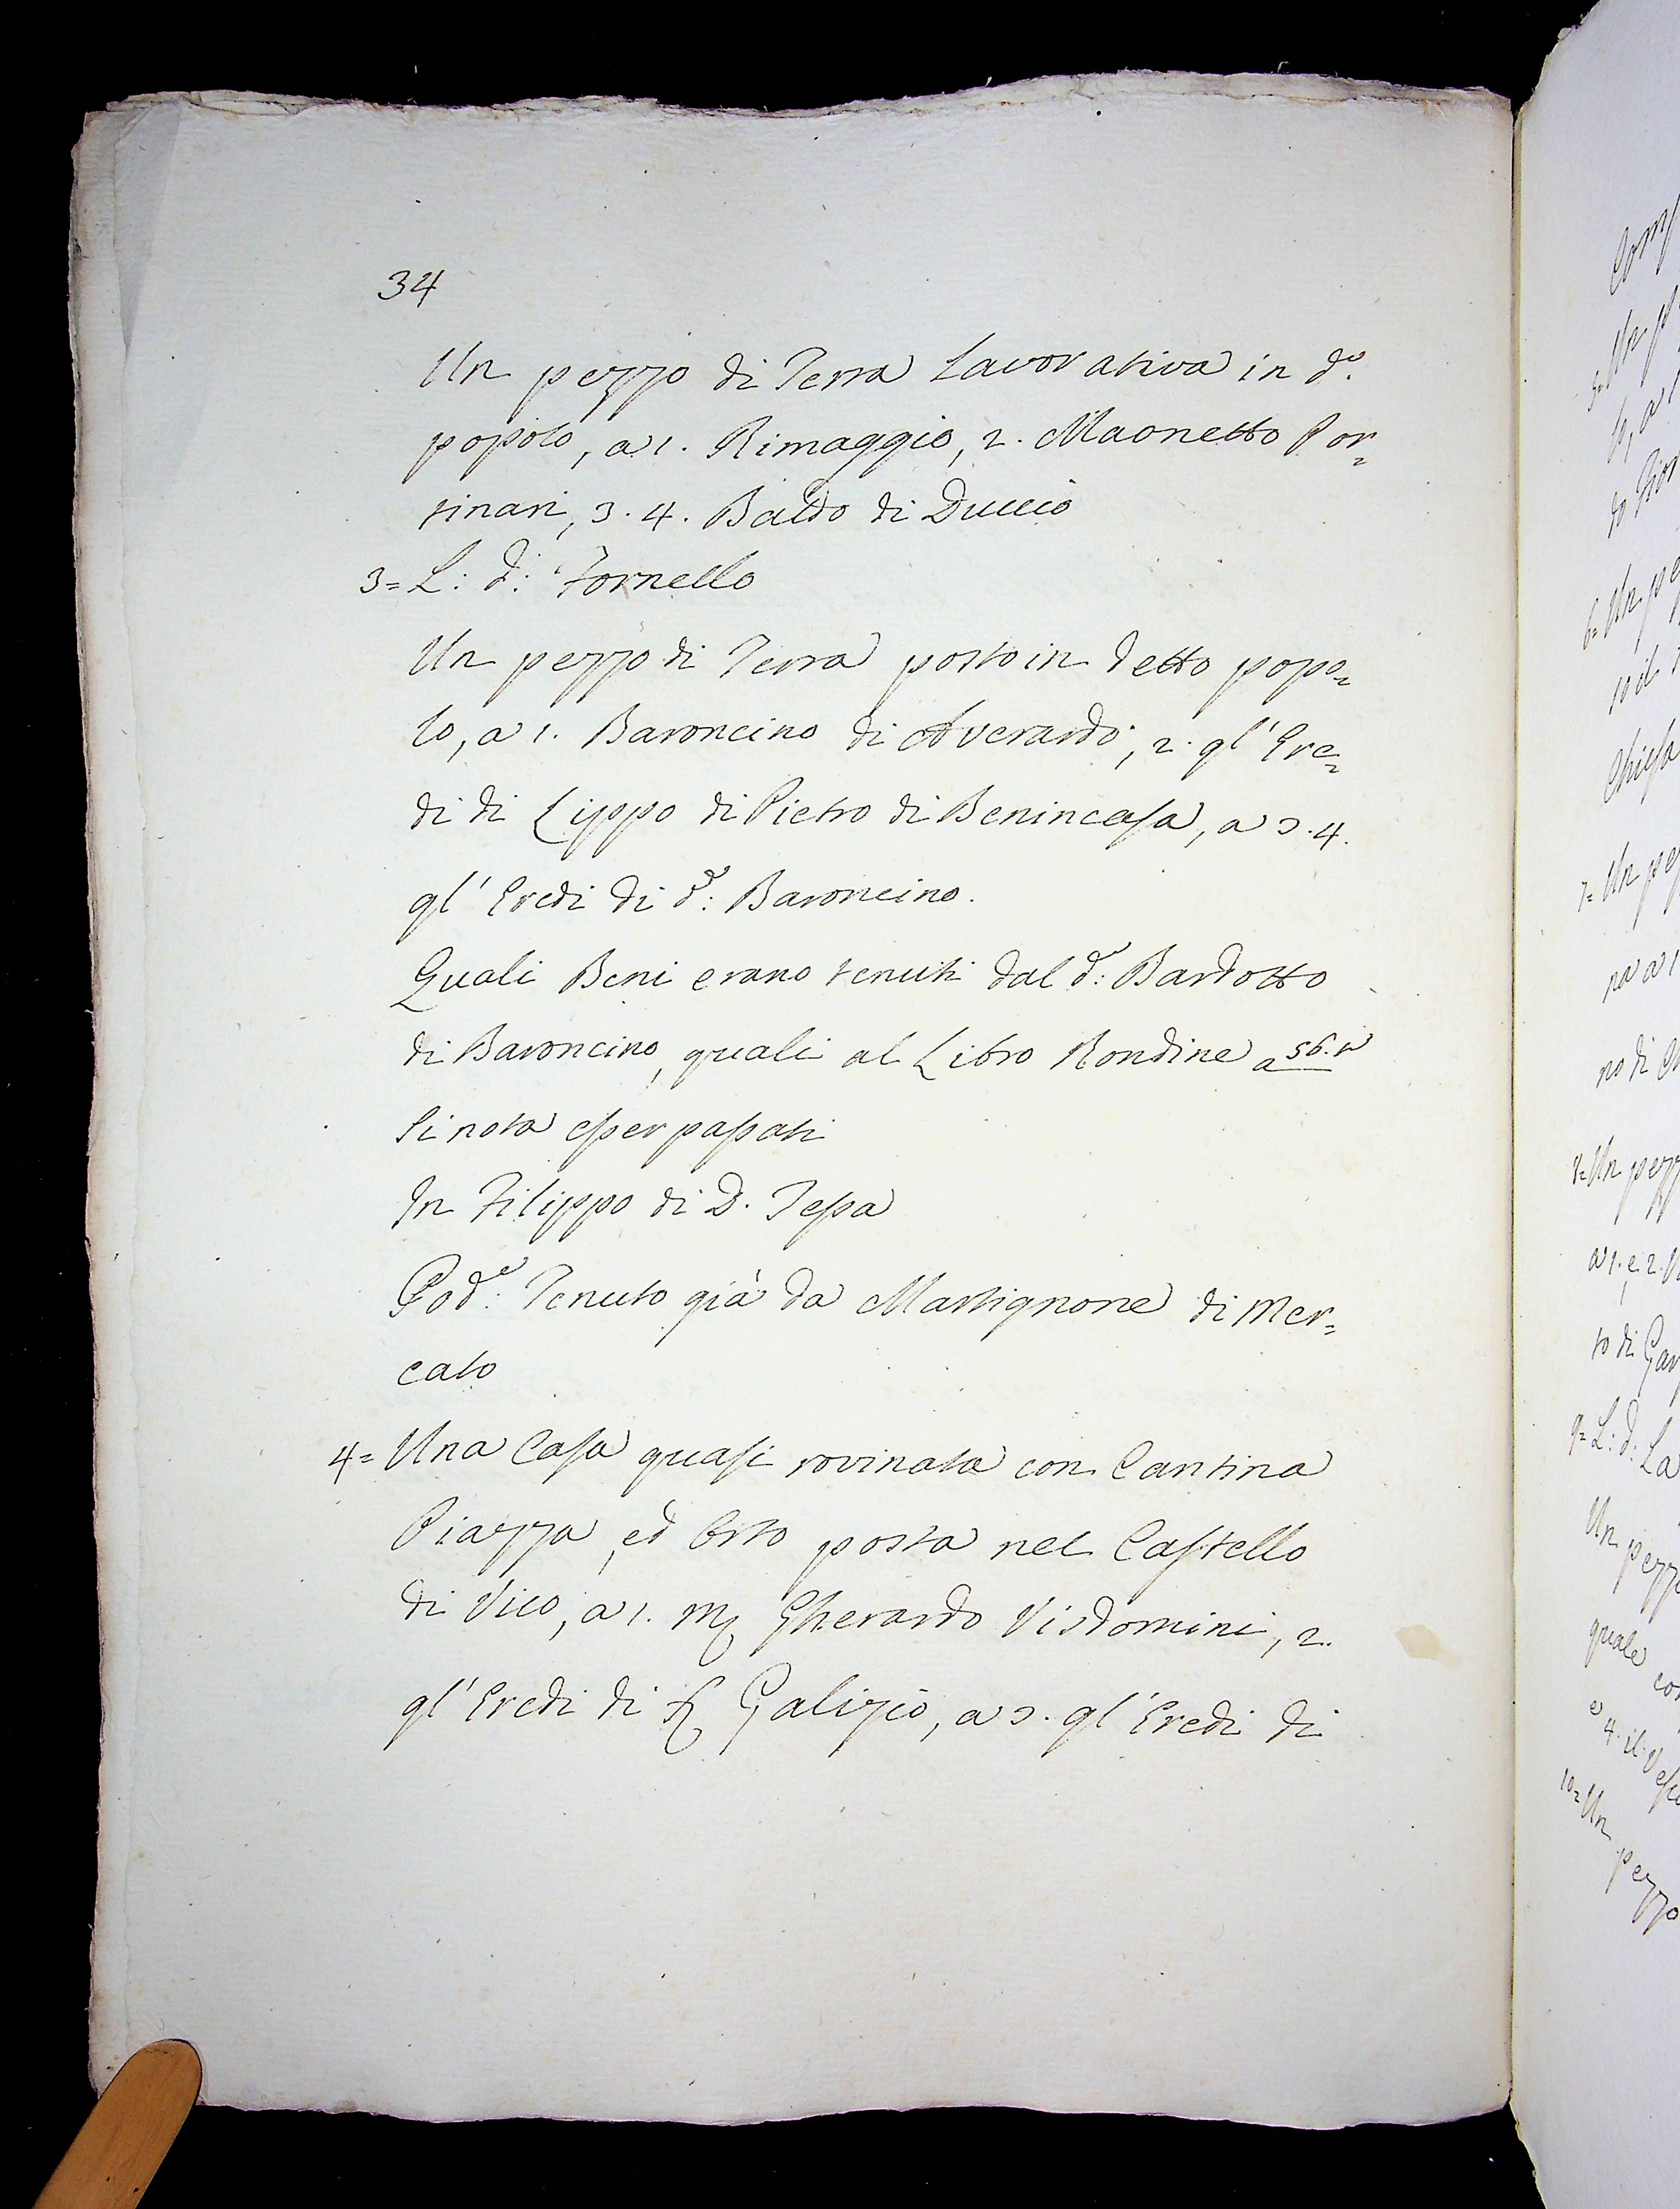 34
Un pezzo di Terra Lavorativa in d.º
popolo, a 1. Rimaggio, 2. Maonetto Por=
tinari, 3. 4. Baldo di Duccio
3= L: d: Fornello
Un pezzo di Terra posto in detto popo=
lo, a 1. Baroncino di Averardo, 2. gl' Ere=
di di Lippo di Pietro di Benincasa, a 3. 4.
gl' Eredi di dº: Baroncino.
Quali Beni erano tenuti dal dº: Bardotto
di Baroncino, quali al Libro Rondine a 56. t.
Si nota esser passati
In Filippo di D. Tessa
Podº: Tenuto già da Martignone di Mer=
cato
4= Una Casa quasi rovinata con Cantina
Piazza, ed Orto posta nel Castello
di Vico, a 1. Gherardo Visdomini, 2.
gl' Eredi di Galizio, a 3. gl' Eredi di
Un pezzo
quale
10= Un pezzo